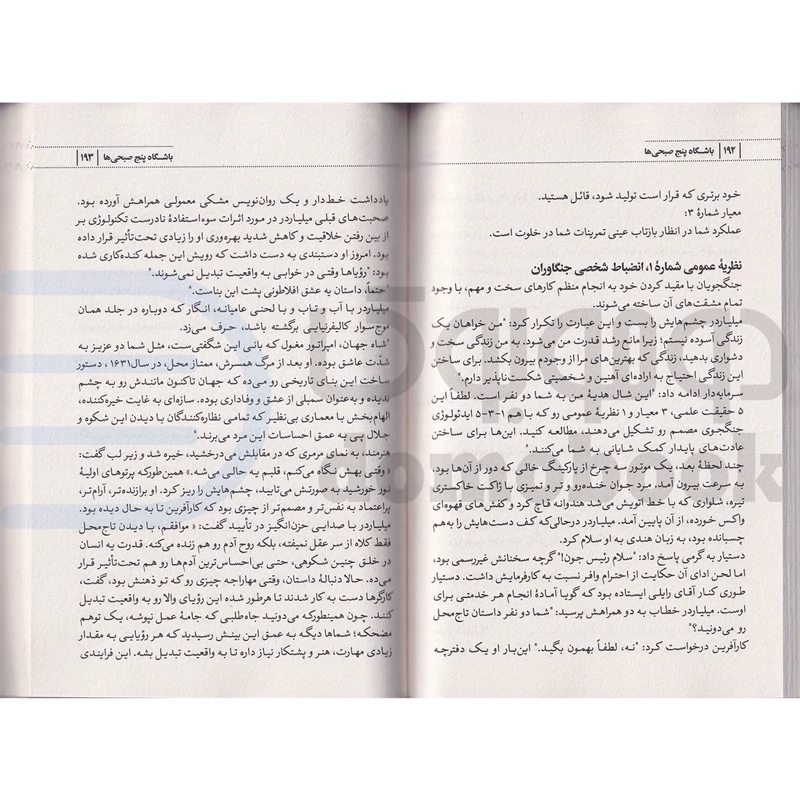 | ۱۹۲ | باشگاه پنج صبحی‌ها
خود برتری که قرار است تولید شود، قائل هستید.
معیار شمارهٔ ۳:
عملکرد شما در انظار بازتاب عینی تمرینات شما در خلوت است.
نظریهٔ عمومی شمارهٔ ۱، انضباط شخصی جنگاوران
جنگجویان با مقید کردن خود به انجام منظم کارهای سخت و مهم، با وجود
تمام مشقت‌های آن ساخته می‌شوند.
میلیاردر چشم‌هایش را بست و این عبارت را تکرار کرد: "من خواهان یک
زندگی آسوده نیستم؛ زیرا مانع رشد قدرت من می‌شود. به من زندگی سخت و
دشواری بدهید، زندگی که بهترین‌های مرا از وجودم بیرون بکشد. برای ساختن
این زندگی احتیاج به اراده‌ای آهنین و شخصیتی شکست‌ناپذیر دارم."
سرمایه‌دار ادامه داد: "این شال هدیهٔ من به شما دو نفر است. لطفاً این
۵ حقیقت علمی، ۳ معیار و ۱ نظریهٔ عمومی رو که با هم ۱-۳-۵ ایدئولوژی
جنگجوی مصمم رو تشکیل می‌دهند، مطالعه کنید. این‌ها برای ساختن
عادت‌های پایدار کمک شایانی به شما می‌کنند."
چند لحظهٔ بعد، یک موتور سه چرخ از پارکینگ خالی که دور از آن‌ها بود،
به سرعت بیرون آمد. مرد جوان خنده‌رو و تر و تمیزی با ژاکت خاکستری
تیره، شلواری که با خط اتویش می‌شد هندوانه قاچ کرد و کفش‌های قهوه‌ای
واکس خورده، از آن پایین آمد. میلیاردر درحالی‌که کف دست‌هایش را به‌هم
چسبانده بود، به زبان هندی به او سلام کرد.
دستیار به گرمی پاسخ داد: "سلام رئیس جون!" گرچه سخنانش غیررسمی بود،
اما لحن ادای آن حکایت از احترام وافر نسبت به کارفرمایش داشت. دستیار
طوری کنار آقای رایلی ایستاده بود که گویا آمادهٔ انجام هر خدمتی برای
اوست. میلیاردر خطاب به دو همراهش پرسید: "شما دو نفر داستان تاج‌محل
رو می‌دونید؟"
کارآفرین درخواست کرد: "نه، لطفاً بهمون بگید." این‌بار او یک دفترچه
باشگاه پنج صبحی‌ها | ۱۹۳ |
یادداشت خط‌دار و یک روان‌نویس مشکی معمولی همراهش آورده بود.
صحبت‌های قبلی میلیاردر در مورد اثرات سوءاستفادهٔ نادرست تکنولوژی بر
از بین رفتن خلاقیت و کاهش شدید بهره‌وری او را زیادی تحت‌تأثیر قرار داده
بود. امروز او دستبندی به دست داشت که رویش این جمله کنده‌کاری شده
بود: "رؤیاها وقتی در خوابی به واقعیت تبدیل نمی‌شوند."
"حتماً، داستان یه عشق افلاطونی پشت این بناست."
میلیاردر با آب و تاب و با لحنی عامیانه، انگار که دوباره در جلد همان
موج‌سوار کالیفرنیایی برگشته باشد، حرف می‌زد.
"شاه جهان، امپراتور مغول که بانی این شگفتی‌ست، مثل شما دو عزیز به
شدّت عاشق بوده. او بعد از مرگ همسرش، ممتاز محل، در سال ۱۶۳۱، دستور
ساخت این بنای تاریخی رو می‌ده که جهان تاکنون مانندش رو به چشم
ندیده و به‌عنوان سمبلی از عشق و وفاداری بوده. سازه‌ای به غایت خیره‌کننده،
الهام‌بخش با معماری بی‌نظیر که تمامی نظاره‌کنندگان با دیدن این شکوه و
جلال پی به عمق احساسات این مرد می‌برند."
هنرمند، به نمای مرمری که در مقابلش می‌درخشید، خیره شد و زیر لب گفت:
«وقتی بهش نگاه می‌کنم، قلبم یه حالی می‌شه.» همین‌طورکه پرتوهای اولیهٔ
نور خورشید به صورتش می‌تابید، چشم‌هایش را ریز کرد. او برازنده‌تر، آرام‌تر،
پراعتماد به نفس‌تر و مصمم‌تر از چیزی بود که کارآفرین تا به حال دیده بود.
میلیاردر با صدایی حزن‌انگیز در تأیید گفت: « موافقم، با دیدن تاج‌محل
فقط کلاه از سر عقل نمیفته، بلکه روح آدم رو هم زنده می‌کنه. قدرت یه انسان
در خلق چنین شکوهی، حتی بی‌احساس‌ترین آدم‌ها رو هم تحت‌تأثیر قرار
می‌ده. حالا دنبالهٔ داستان، وقتی مهاراجه چیزی رو که تو ذهنش بود، گفت،
کارگرها دست به کار شدند تا هرطور شده این رؤیای والا رو به واقعیت تبدیل
کنند. چون همینطورکه می‌دونید جاه‌طلبی که جامهٔ عمل نپوشه، یک توهم
مضحکه؛ شماها دیگه به عمق این بینش رسیدید که هر رؤیایی به مقدار
زیادی مهارت، هنر و پشتکار نیاز داره تا به واقعیت تبدیل بشه. این فرایندی